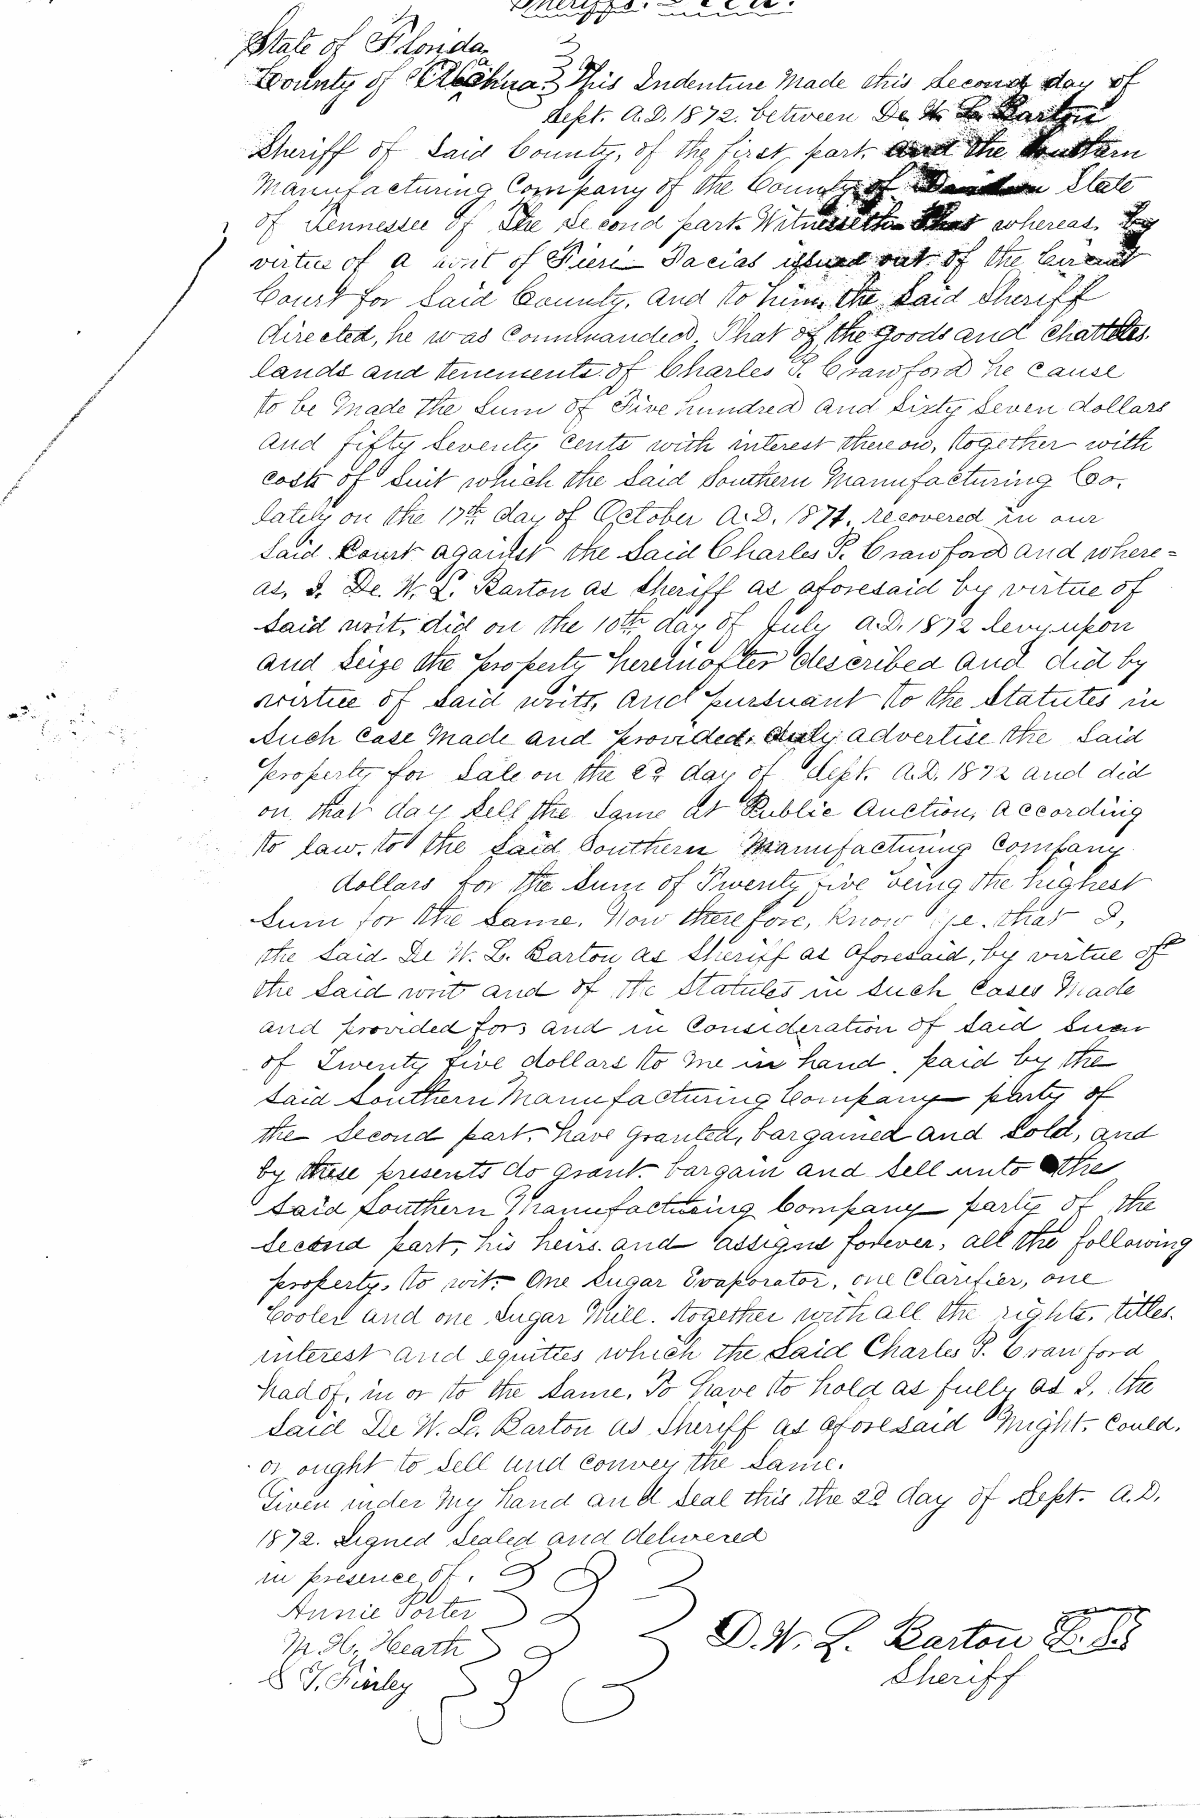 Sheriffs. Deed.
State of Florida
County of Alachua. This Indenture Made this second day of
Sept. A.D. 1872. between De W. L. Barton
Sheriff of said County, of the first part, and the Southern
Manufacturing Company of the County of State
of Tennessee of the second part. Witnesseth that whereas, by
virtue of a writ of Fieri Facias issued out of the Circuit
Court for said County, and to him, the said Sheriff
directed, he was commanded, That of the goods and chatteles.
lands and tenements of Charles P. Crawford he cause
to be Made the sum of Five hundred and sixty seven dollars
and fifty seventy cents with interest thereon, together with
costs of suit which the said Southern Manufacturing Co.
lately on the 17th day of October A.D. 1871, recovered in our
said Court against the said Charles P. Crawford and where=
as, I. De. W. L. Barton as Sheriff as aforesaid by virtue of
said writ, did on the 10th day of July A.D. 1872 levy upon
and seize the property hereinafter described and did by
virtue of said writ, and pursuant to the Statutes in
such case Made and provided, duly advertise the said
property for sale on the 2d day of Sept. A.D. 1872 and did
on that day sell the same at Public Auction, according
to law, to the said Southern Manufacturing Company
dollars for the sum of Twenty five being the highest
sum for the same. Now therefore, know ye. that I,
the said De W. L. Barton as Sheriff as aforesaid, by virtue of
the said writ and of the Statutes in such cases Made
and provided for, and in consideration of said sum
of Twenty five dollars to me in hand. paid by the
said Southern Manufacturing Company party of
the second part, have granted, bargained and sold, and
by these presents do grant. bargain and sell unto the
said Southern Manufacturing Company party of the
second part, his heirs. and assigns forever, all the following
property, to wit: One Sugar Evaporator, one Clarifier, one
Cooler and one Sugar Mill. together with all the rights, titles.
interest and equities which the said Charles P. Crawford
had of, in or to the same. To have to hold as fully as I, the
said De W. L. Barton as Sheriff as aforesaid Might. Could,
or ought to sell and convey the same.
Given under My hand and seal this the 2d day of Sept. A.D.
1872. Signed sealed and delivered
in presence of.
Annie Porter
M. H. Heath
S T. Finley
D. W. L. Barton L. S.
Sheriff